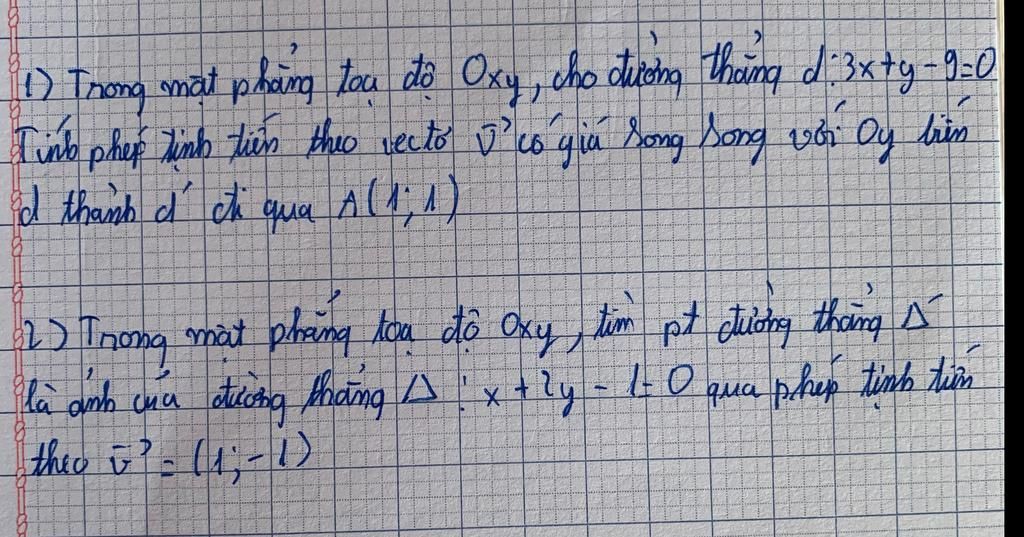 1) Trong mặt phẳng tọa độ Oxy, cho đường thẳng d: 3x + y - 9 = 0
Tính phép tịnh tiến theo vectơ v có giá song song với Oy biến
d thành d' đi qua A(1; 1)
2) Trong mặt phẳng tọa độ Oxy, tìm pt đường thẳng Δ'
là ảnh của đường thẳng Δ: x + 2y - 1 = 0 qua phép tịnh tiến
theo v = (1; -1)